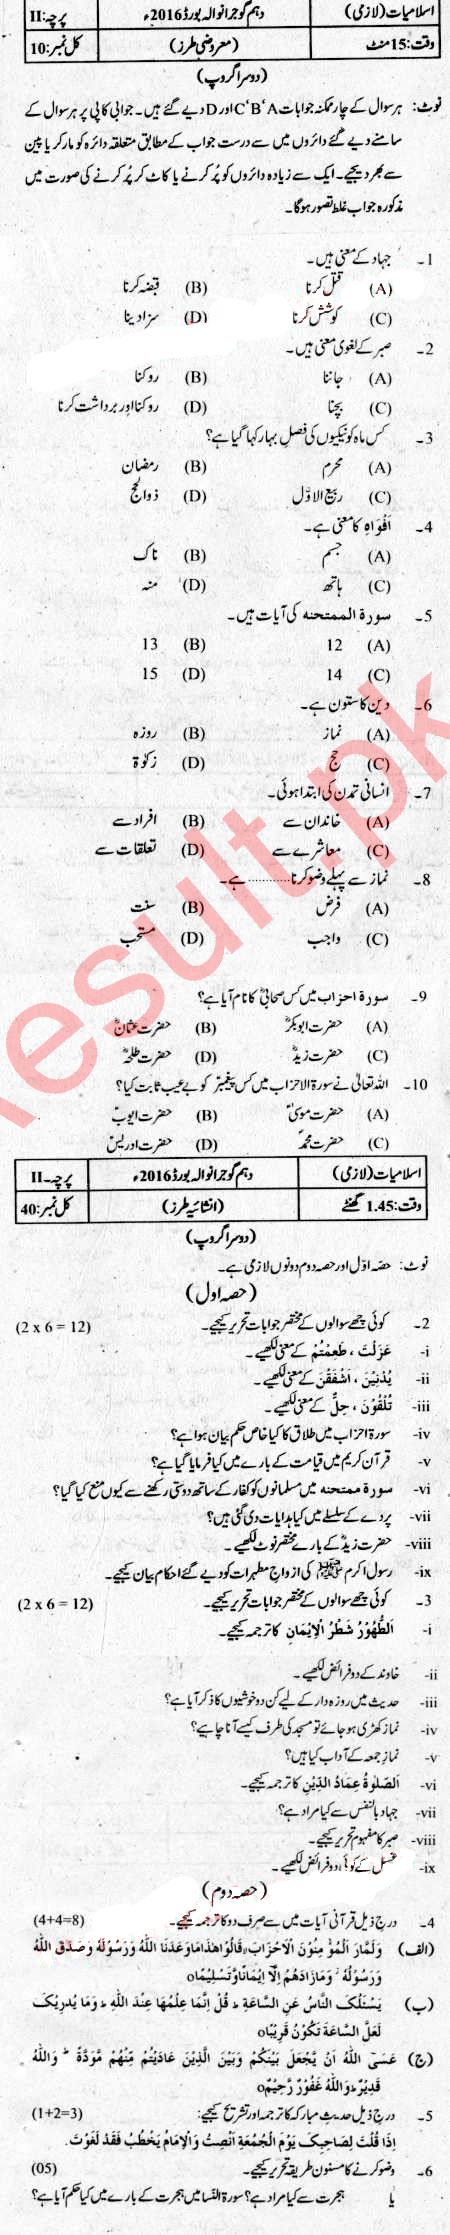 اسلامیات (لازمی) دہم گوجرانوالہ بورڈ 2016ء پرچہ: II
وقت: 15 منٹ (معروضی طرز) کل نمبر: 10
(دوسرا گروپ)
نوٹ: ہر سوال کے چار ممکنہ جوابات A'B'C اور D دیے گئے ہیں۔ جوابی کاپی پر ہر سوال کے
سامنے دیے گئے دائروں میں سے درست جواب کے مطابق متعلقہ دائرہ کو مارکر یا پین
سے بھر دیجیے۔ ایک سے زیادہ دائروں کو پُر کرنے یا کاٹ کر پُر کرنے کی صورت میں
مذکورہ جواب غلط تصور ہوگا۔
1۔ جہاد کے معنی ہیں۔
(A) قتل کرنا (B) قبضہ کرنا
(C) کوشش کرنا (D) سزا دینا
2۔ صبر کے لغوی معنی ہیں۔
(A) جاننا (B) روکنا
(C) بچنا (D) روکنا اور برداشت کرنا
3۔ کس ماہ کو نیکیوں کی فصلِ بہار کہا گیا ہے؟
(A) محرم (B) رمضان
(C) ربیع الاوّل (D) ذوالحج
4۔ اَفْوَاہِ کا معنی ہے۔
(A) جسم (B) ناک
(C) ہاتھ (D) منہ
5۔ سورۃ الممتحنہ کی آیات ہیں۔
(A) 12 (B) 13
(C) 14 (D) 15
6۔ دین کا ستون ہے۔
(A) نماز (B) روزہ
(C) حج (D) زکوٰۃ
7۔ انسانی تمدن کی ابتدا ہوئی۔
(A) خاندان سے (B) افراد سے
(C) معاشرے سے (D) تعلقات سے
8۔ نماز سے پہلے وضو کرنا ............ ہے۔
(A) فرض (B) سنت
(C) واجب (D) مستحب
9۔ سورۃ احزاب میں کس صحابیؓ کا نام آیا ہے؟
(A) حضرت ابوبکرؓ (B) حضرت عثمانؓ
(C) حضرت زیدؓ (D) حضرت طلحہؓ
10۔ اللہ تعالیٰ نے سورۃ الاحزاب میں کس پیغمبرؑ کو بے عیب ثابت کیا؟
(A) حضرت موسیٰؑ (B) حضرت ایوبؑ
(C) حضرت محمدؐ (D) حضرت ادریسؑ
اسلامیات (لازمی) دہم گوجرانوالہ بورڈ 2016ء پرچہ۔ II
وقت: 1.45 گھنٹے (انشائیہ طرز) کل نمبر: 40
(دوسرا گروپ)
نوٹ: حصہ اوّل اور حصہ دوم دونوں لازمی ہے۔
(حصہ اول)
2۔ کوئی چھے سوالوں کے مختصر جوابات تحریر کیجیے۔ (2 x 6 = 12)
i- عَزَلْتَ ، طَعِمْتُمْ کے معنی لکھیے۔
ii- یُدْنِیْنَ ، اَشْفَقْنَ کے معنی لکھیے۔
iii- تُلْقُوْنَ ، حِلٌّ کے معنی لکھیے۔
iv- سورۃ احزاب میں طلاق کا کیا خاص حکم بیان ہوا ہے؟
v- قرآن کریم میں قیامت کے بارے میں کیا فرمایا گیا ہے؟
vi- سورۃ ممتحنہ میں مسلمانوں کو کفار کے ساتھ دوستی رکھنے سے کیوں منع کیا گیا؟
vii- پردے کے سلسلے میں کیا ہدایات دی گئی ہیں؟
viii- حضرت زیدؓ کے بارے مختصر نوٹ لکھیے۔
ix- رسول اکرم ﷺ کی ازواجِ مطہرات کو دیے گئے احکام بیان کیجیے۔
3۔ کوئی چھے سوالوں کے مختصر جوابات تحریر کیجیے۔ (2 x 6 = 12)
i- اَلطُّھُوْرُ شَطْرُ الْاِیْمَانِ کا ترجمہ کیجیے۔
ii- خاوند کے دو فرائض لکھیے۔
iii- حدیث میں روزہ دار کے لیے کن دو خوشیوں کا ذکر آیا ہے؟
iv- نماز کھڑی ہو جائے تو مسجد کی طرف کیسے آنا چاہیے؟
v- نمازِ جمعہ کے آداب کیا ہیں؟
vi- اَلصَّلٰوۃُ عِمَادُ الدِّیْنِ کا ترجمہ کیجیے۔
vii- جہاد بالنفس سے کیا مراد ہے؟
viii- صبر کا مفہوم تحریر کیجیے۔
ix- غسل کے کوئی دو فرائض لکھیے۔
(حصہ دوم)
4۔ درج ذیل قرآنی آیات میں سے صرف دو کا ترجمہ کیجیے۔ (4+4=8)
(الف) وَلَمَّارَ اَلْمُؤْ مِنُوْنَ الْاَحْزَابَ قَالُوْا ھٰذَا مَا وَعَدَنَا اللّٰہُ وَرَسُوْلُہٗ وَصَدَقَ اللّٰہُ
وَرَسُوْلُہٗ وَمَا زَادَھُمْ اِلَّا اِیْمَانًا وَّتَسْلِیْمًاo
(ب) یَسْئَلُکَ النَّاسُ عَنِ السَّاعَۃِ ط قُلْ اِنَّمَا عِلْمُھَا عِنْدَ اللّٰہِ ط وَمَا یُدْرِیْکَ
لَعَلَّ السَّاعَۃَ تَکُوْنُ قَرِیْبًاo
(ج) عَسَی اللّٰہُ اَنْ یَّجْعَلَ بَیْنَکُمْ وَبَیْنَ الَّذِیْنَ عَادَیْتُمْ مِنْھُمْ مَّوَدَّۃً ط وَاللّٰہُ
قَدِیْرٌ ط وَاللّٰہُ غَفُوْرٌ رَّحِیْمٌo
5۔ درج ذیل حدیث مبارکہ کا ترجمہ اور تشریح کیجیے: (1+2=3)
اِذَا قُلْتَ لِصَاحِبِکَ یَوْمَ الْجُمُعَۃِ اَنْصِتْ وَالْاِمَامُ یَخْطُبُ فَقَدْ لَغَوْتَ۔
6۔ وضو کرنے کا مسنون طریقہ تحریر کیجیے۔ (05)
یا ہجرت سے کیا مراد ہے؟ سورۃ النسا میں ہجرت کے بارے میں کیا حکم آیا ہے؟
esult.pk